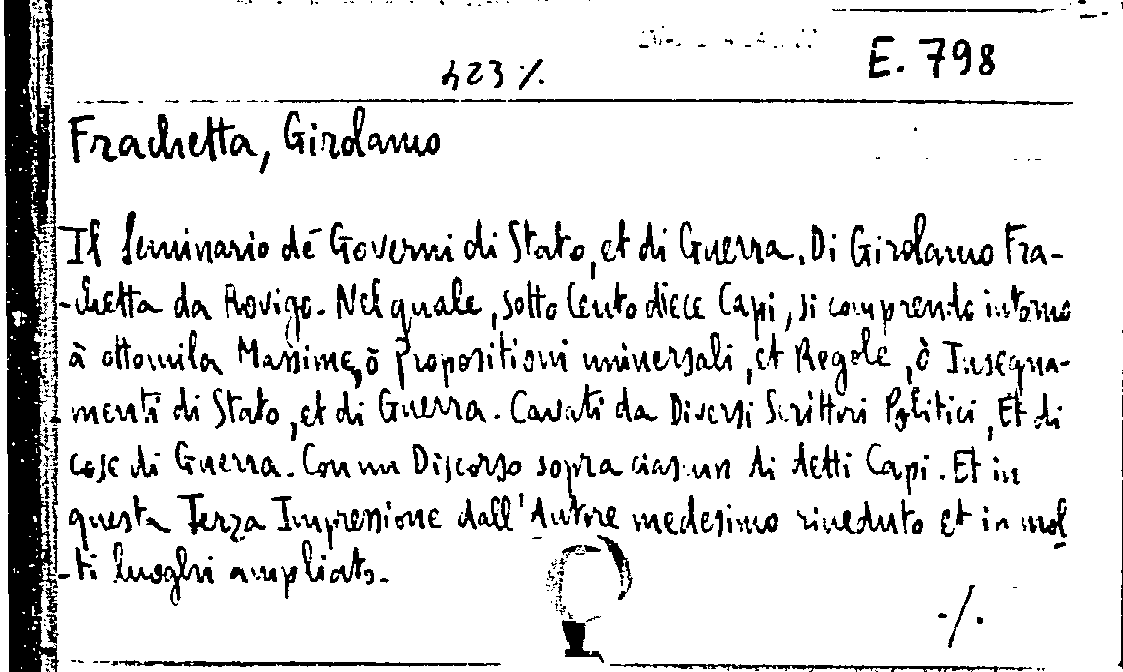 E. 798
423 ./.
Frachetta, Girolamo
Il Seminario dé Governi di Stato, et di Guerra. Di Girolamo Fra-
-chetta da Rovigo. Nel quale, sotto Cento diece Capi, si comprendo intorno
à ottomila Massime, ò Propositioni universali, et Regole, ò Insegna-
menti di Stato, et di Guerra. Cavati da Diversi Scrittori Politici, Et di
cose di Guerra. Con un Discorso sopra ciascun di detti Capi. Et in
questa Terza Impressione dall'Autore medesimo riveduto et in mol
-ti luoghi ampliato.
./.